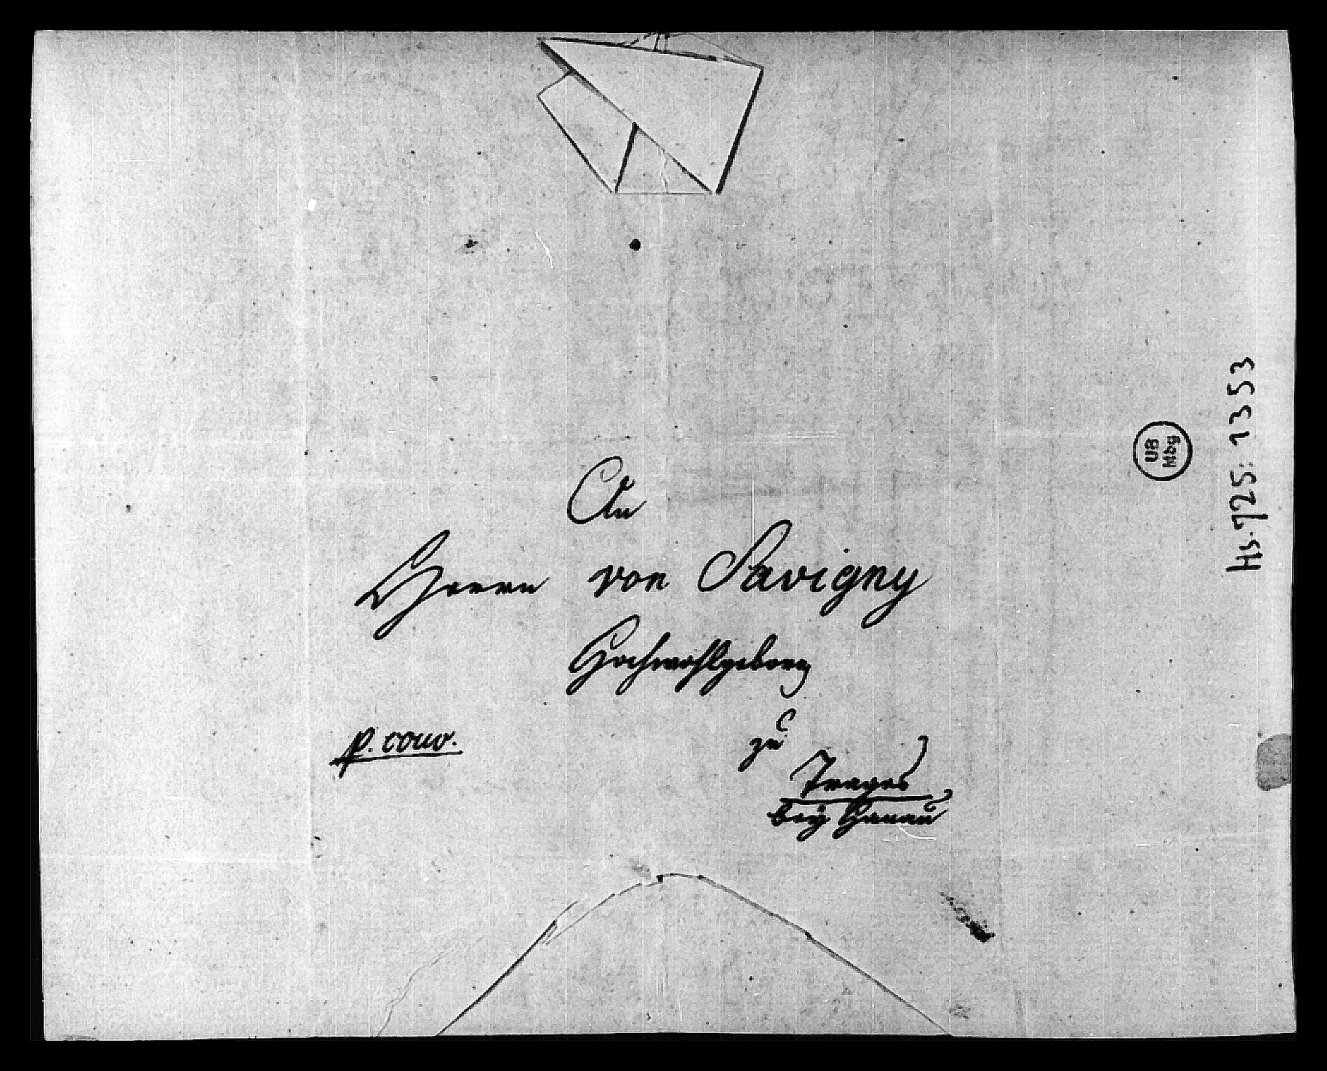 An
Herrn von Savigny
Hochwohlgeboren
p. couv.
zu
Trages
bey Hanau
UB
Mbg
Hs. 725: 1353